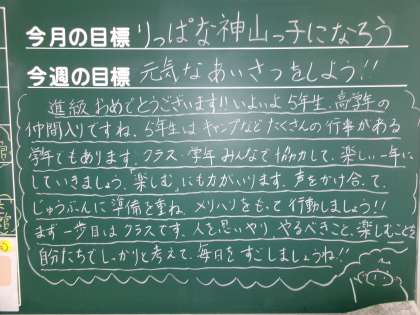 今月の目標 りっぱな神山っ子になろう
今週の目標 元気なあいさつをしよう!!
進級おめでとうございます!!いよいよ5年生.高学年の
仲間入りですね.5年生はキャンプなどたくさんの行事がある
学年でもあります.クラス.学年みんなで協力して.楽しい一年に
していきましょう.「楽しむ」にも力がいります.声をかけ合って.
じゅうぶんに準備を重ね.メリハリをもって行動しましょう!!
まず一歩目はクラスです.人を思いやり やるべきこと.楽しむことを
自分たちでしっかりと考えて.毎日をすごしましょうね!!